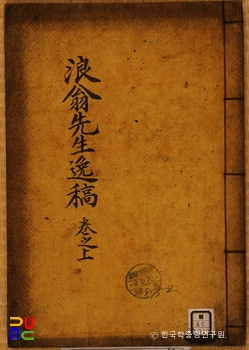 浪翁先生逸稿
卷之上
ⓒ 한국학중앙연구원